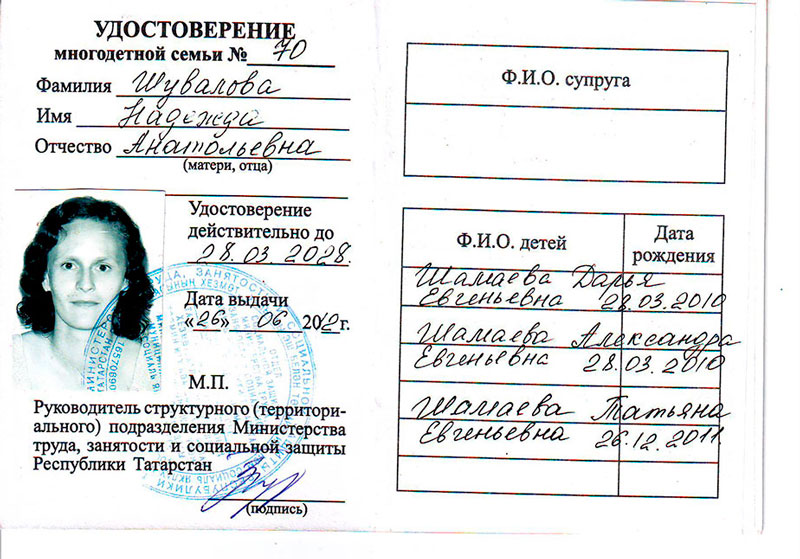 УДОСТОВЕРЕНИЕ
многодетной семьи № 70
Фамилия Шувалова
Имя Надежда
Отчество Анатольевна
(матери, отца)
Удостоверение
действительно до
28.03.2028.
Дата выдачи
«26» 06 2012г.
М.П.
Руководитель структурного (территори-
ального) подразделения Министерства
труда, занятости и социальной защиты
Республики Татарстан
(подпись)
Ф.И.О. супруга
Ф.И.О. детей
Дата
рождения
Шамаева Дарья
Евгеньевна 28.03.2010
Шамаева Александра
Евгеньевна 28.03.2010
Шамаева Татьяна
Евгеньевна 26.12.2011